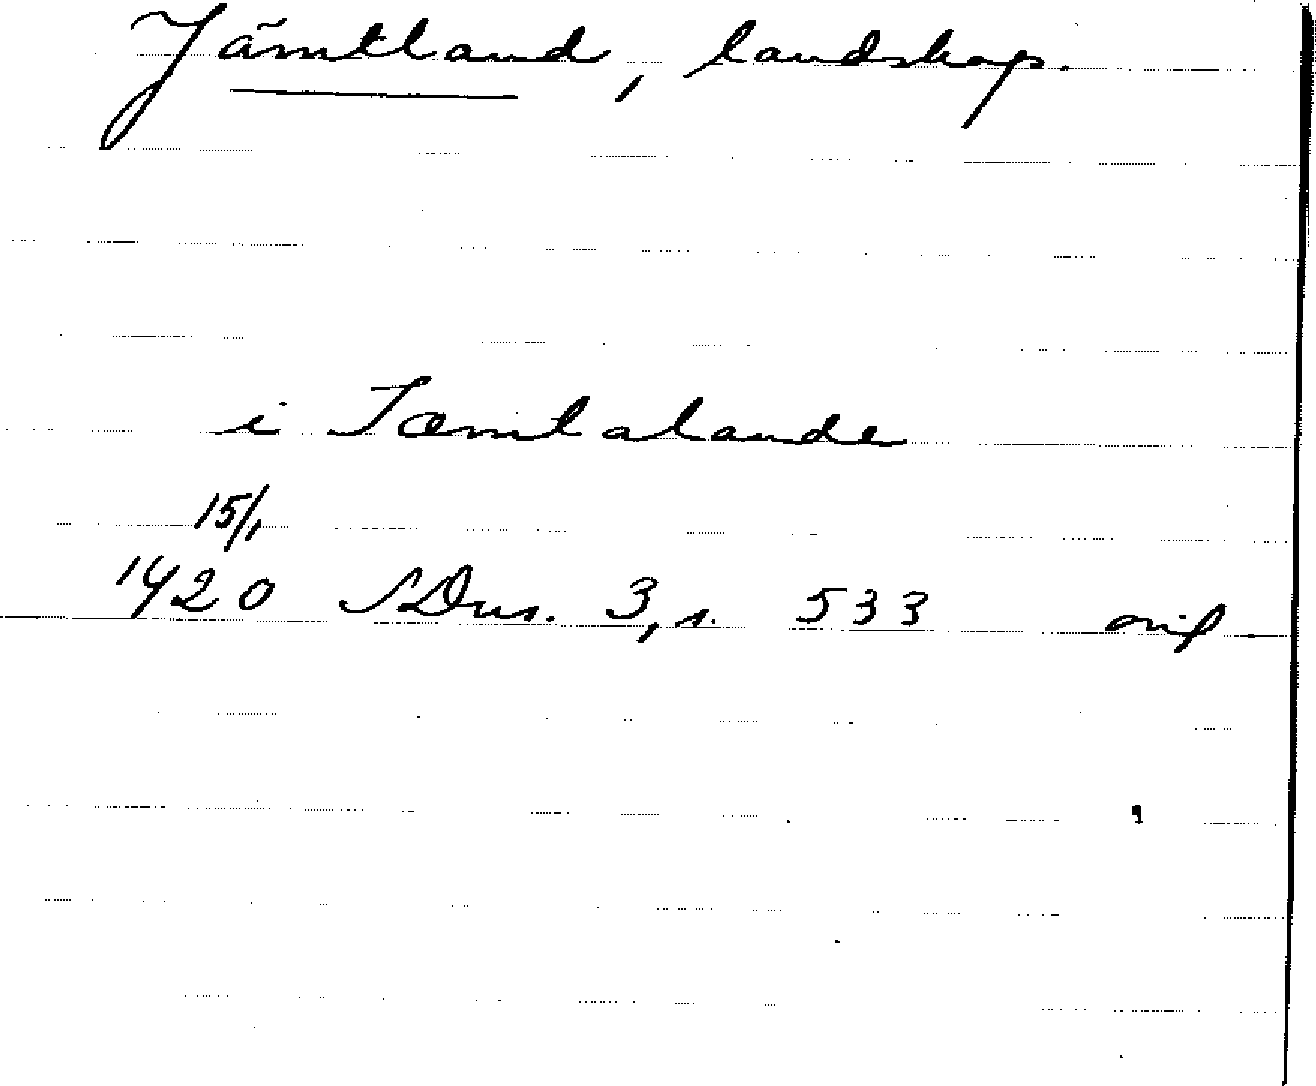 Jämtland, landskap.
i Jæmtalande
15/1
1420 SDns. 3, s. 533